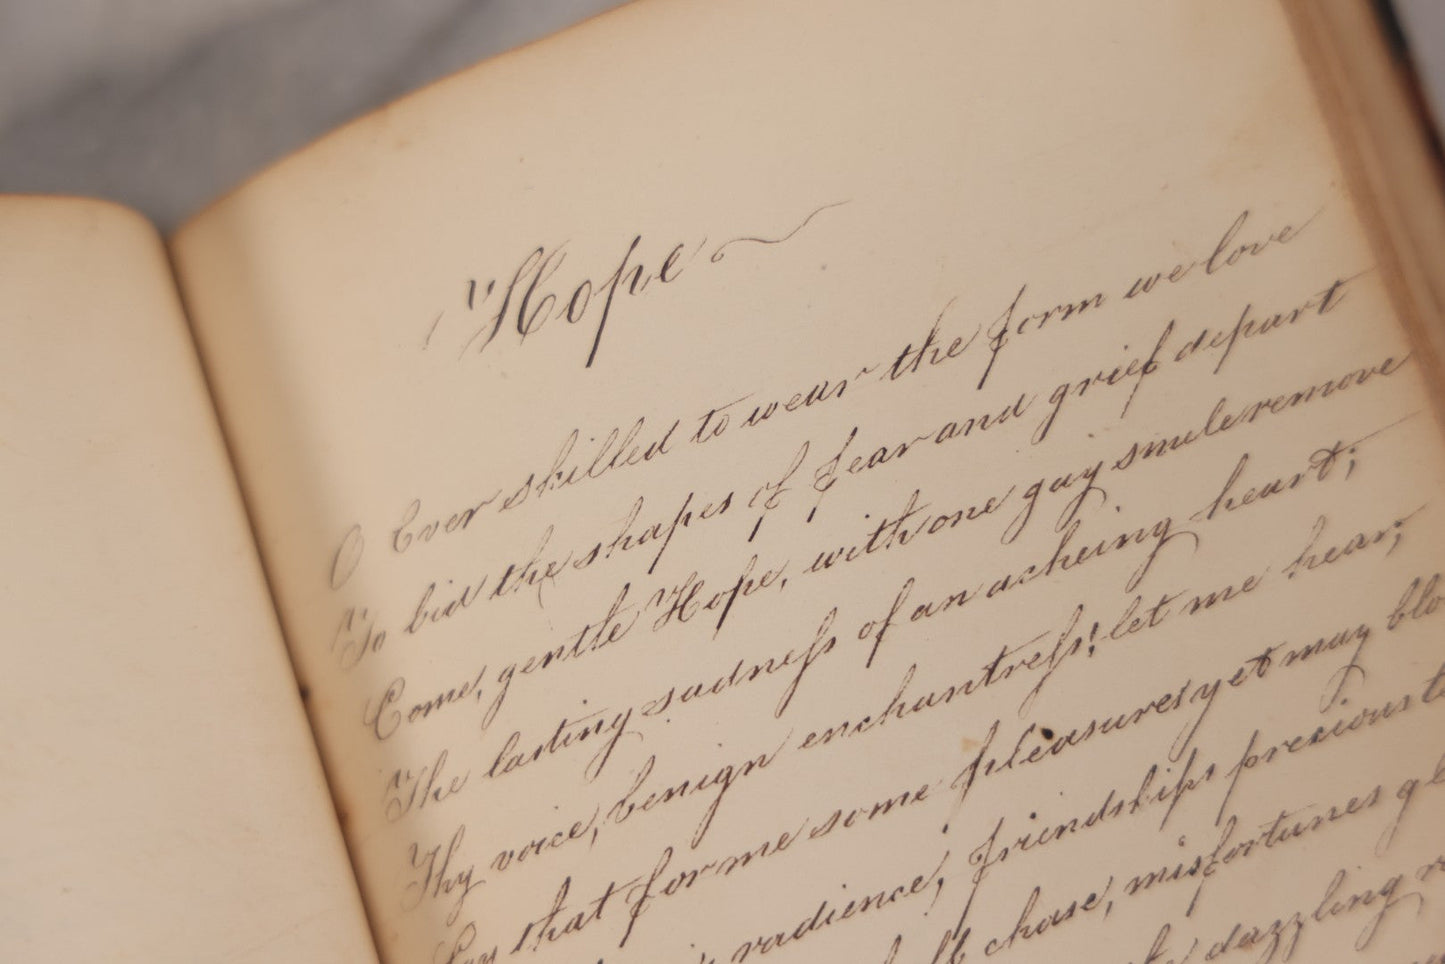 "Hope
O Ever skilled to wear the form we love
To bid the shapes of fear and grief depart
Come, gentle Hope, with one gay smile remove
The lasting sadneſs of an acheing heart;
Thy voice, benign enchantreſs! let me hear;
Say that for me some pleasures yet may blo
radience, friendships precious
chase, misfortunes
dazzling